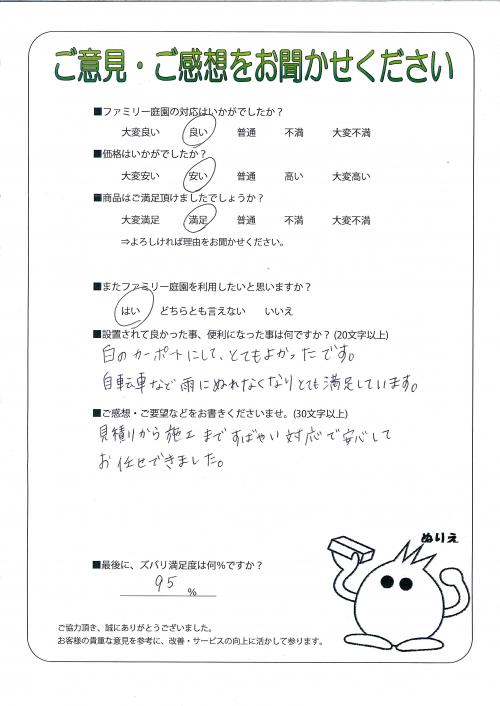 ご意見・ご感想をお聞かせください
■ファミリー庭園の対応はいかがでしたか？
大変良い 良い 普通 不満 大変不満
■価格はいかがでしたか？
大変安い 安い 普通 高い 大変高い
■商品はご満足頂けましたでしょうか？
大変満足 満足 普通 不満 大変不満
⇒よろしければ理由をお聞かせください。
■またファミリー庭園を利用したいと思いますか？
はい どちらとも言えない いいえ
■設置されて良かった事、便利になった事は何ですか？(20文字以上)
白のカーポートにして、とてもよかったです。
自転車など雨にぬれなくなりとても満足しています。
■ご感想・ご要望などをお書きくださいませ。(30文字以上)
見積りから施工まですばやい対応で安心して
お任せできました。
ぬりえ
■最後に、ズバリ満足度は何％ですか？
95 %
ご協力頂き、誠にありがとうございました。
お客様の貴重な意見を参考に、改善・サービスの向上に活かして参ります。